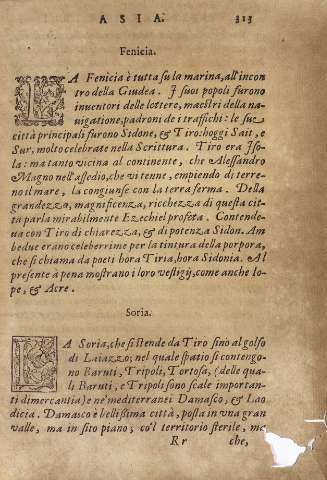 ASIA. 313
Fenicia.
LA Fenicia è tutta su la marina, all'incon
tro della Giudea. I suoi popoli furono
inuentori delle lettere, maestri della na-
uigatione, padroni de i traffichi: le sue
città principali furono Sidone, & Tiro: hoggi Sait, e
Sur, molto celebrate nella Scrittura. Tiro era Iso-
la: ma tanto vicina al continente, che Alessandro
Magno nell'assedio, che vi tenne, empiendo di terre-
no il mare, la congiunse con la terra ferma. Della
grandezza, magnificenza, ricchezza di questa cit-
tà parla mirabilmente Ezechiel profeta. Contende-
ua con Tiro di chiarezza, & di potenza Sidon. Am
bedue erano celeberrime per la tintura della porpora,
che si chiama da poeti hora Tiria, hora Sidonia. Al
presente à pena mostrano i loro vestigij, come anche Io-
pe, & Acre.
Soria.
LA Soria, che si stende da Tiro sino al golfo
di Laiazzo; nel quale spatio si contengo-
no Baruti, Tripoli, Tortosa, (delle qua-
li Baruti, e Tripoli sono scale importan-
ti di mercantia) e ne' mediterranei Damasco, & Lao
dicea. Damasco è bellissima città, posta in vna gran
valle, ma in sito piano, co'l territorio sterile, ma
Rr che,